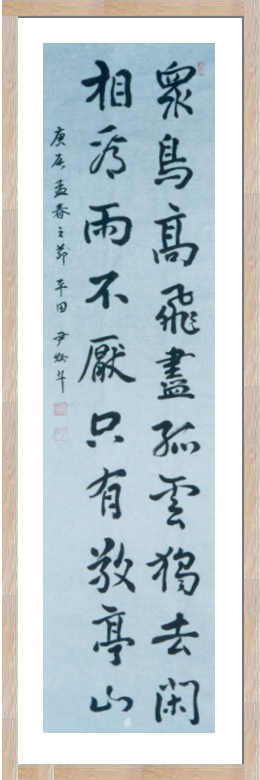 眾鳥高飛盡孤雲獨去閑
相看兩不厭只有敬亭山
庚辰孟春之節 平田 尹